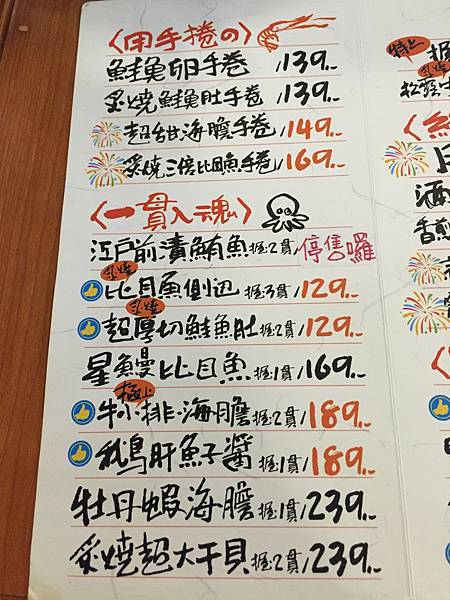 〈用手捲の〉
鮭魚卵手卷 /139.-
炙燒鮭魚肚手卷 /139.-
超甜海膽手卷 /149.-
炙燒三倍比目魚手卷 /169.-
〈一貫入魂〉
江戶前漬鮪魚 握2貫/停售囉
炙燒
比目魚側边 握3貫/129.-
炙燒
超厚切鮭魚肚 握2貫/129.-
星鰻比目魚 握1貫/169.-
極上
牛小排海膽 握2貫/189.-
鵝肝魚子醬 握1貫/189.-
牡丹蝦海膽 握1貫/239.-
炙燒超大干貝 握2貫/239.-
特上